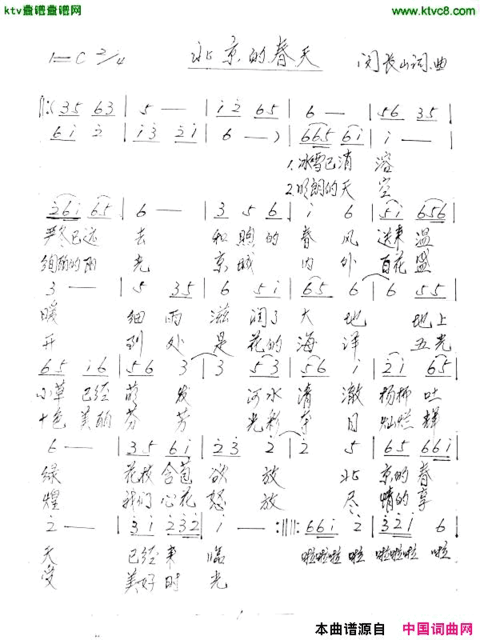 ktv查谱查谱网
www.ktvc8.com
1=C 2/4 北京的春天 闵长山词.曲
‖: 35 63 | 5 — | i̇2̇ 65 | 6 — | 56 35 |
6i̇ 2̇ | i̇3̇ 2̇i̇ | 6 — ) | 665 6i̇ | i̇ — |
1.冰雪已消 溶
2.明朗的天 空
2̇6i̇ 65 | 6 — | 3 56 | i̇ 6 | 5i̇ 656 |
严冬已远 去 和煦的 春 风 送来温
绚丽的阳 光 京城 内 外 百花盛
3 — | 5 35 | 6 5i̇ | 65 6 | 6 55 |
暖 细雨 滋 润了大 地 地上
开 到处 是 花的海 洋 五光
65 i̇6 | 56 3 | 3 53 | 56 i̇ | 2̇i̇ 65 |
小草 已经 萌 发 河水 清 澈 杨柳 吐
十色 美丽 芬 芳 光彩 夺 目 灿烂 辉
6 — | 35 6i̇ | 2̇3̇ 2̇ | 2̇ 5 | 65 66i̇ |
绿 花枝 含苞 欲 放 北 京的 春
煌 我们 心花 怒 放 尽 情的 享
2̇ — | 3̇i̇ 2̇3̇2̇ | i̇ — :‖ 66i̇ 2̇ | 3̇2̇i̇ 6 |
天 已经 来 临 啦啦啦 啦 啦啦啦 啦
受 美好 时 光
本曲谱源自 中国词曲网